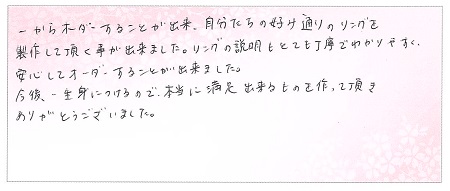 一からオーダーすることが出来、自分たちの好け通りのリングを
製作して頂く事が出来ました。リングの説明もとても丁寧でわかりやすく、
安心してオーダーすることが出来ました。
今後、一生身につけるので、本当に満足出来るものを作って頂き
ありがとうございました。